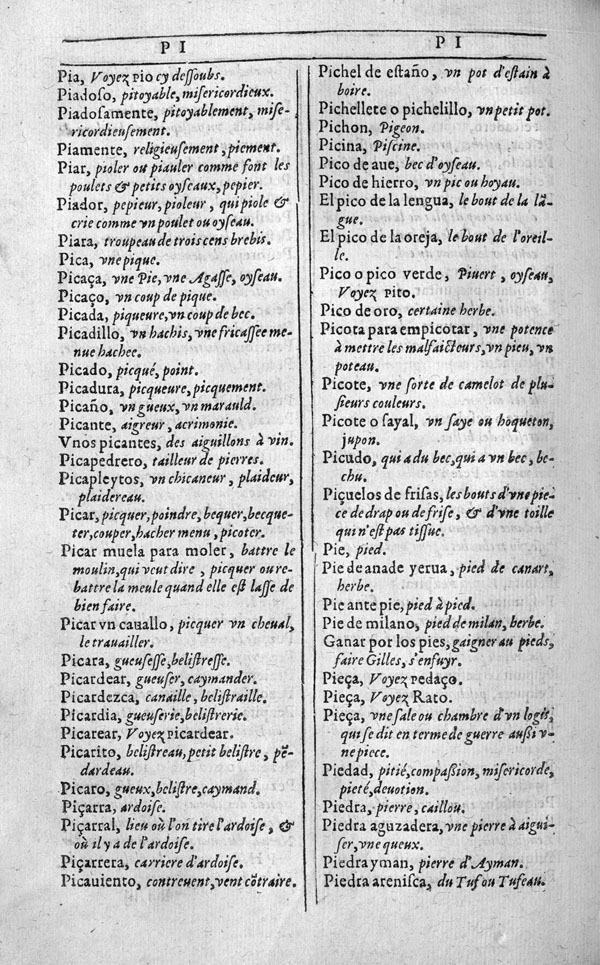 P I
Pia, Voyez pio cy dessoubs.
Piadoso, pitoyable, misericordieux.
Piadosamente, pitoyablement, mise-
ricordieusement.
Piamente, religieusement, piement.
Piar, pioler ou piauler comme font les
poulets & petits oyseaux, pepier.
Piador, pepieur, pioleur, qui piole &
crie comme vn poulet ou oyseau.
Piara, troupeau de trois cens brebis.
Pica, vne pique.
Picaça, vne Pie, vne Agasse, oyseau.
Picaço, vn coup de pique.
Picada, piqueure, vn coup de bec.
Picadillo, vn hachis, vne fricassee me-
nue hachee.
Picado, picqué, point.
Picadura, picqueure, picquement.
Picaño, vn gueux, vn marauld.
Picante, aigreur, acrimonie.
Vnos picantes, des aiguillons à vin.
Picapedrero, tailleur de pierres.
Picapleytos, vn chicaneur, plaideur,
plaidereau.
Picar, picquer, poindre, bequer, becque-
ter, couper, hacher menu, picoter.
Picar muela para moler, battre le
moulin, qui veut dire, picquer ou re-
battre la meule quand elle est lasse de
bien faire.
Picar vn cauallo, picquer vn cheual,
le trauailler.
Picara, gueusesse, belistresse.
Picardear, gueuser, caymander.
Picardezca, canaille, belistraille.
Picardia, gueuserie, belistrerie.
Picarear, Voyez picardear.
Picarito, belistreau, petit belistre, pẽ-
dardeau.
Picaro, gueux, belistre, caymand.
Piçarra, ardoise.
Piçarral, lieu où l'on tire l'ardoise, &
où il y a de l'ardoise.
Piçarrera, carriere d'ardoise.
Picauiento, contreuent, vent cõtraire.
P I
Pichel de estaño, vn pot d'estain à
boire.
Pichellete o pichelillo, vn petit pot.
Pichon, Pigeon.
Picina, Piscine.
Pico de aue, bec d'oyseau.
Pico de hierro, vn pic ou hoyau.
El pico de la lengua, le bout de la lã-
gue.
El pico de la oreja, le bout de l'oreil-
le.
Pico o pico verde, Piuert, oyseau,
Voyez pito.
Pico de oro, certaine herbe.
Picota para empicotar, vne potence
à mettre les malfaicteurs, vn pieu, vn
poteau.
Picote, vne sorte de camelot de plu-
sieurs couleurs.
Picote o sayal, vn saye ou hoqueton,
jupon.
Picudo, qui a du bec, qui a vn bec, be-
chu.
Piçuelos de frisas, les bouts d'vne pie-
ce de drap ou de frise, & d'vne toille
qui n'est pas tissue.
Pie, pied.
Pie de anade yerua, pied de canart,
herbe.
Pie ante pie, pied à pied.
Pie de milano, pied de milan, herbe.
Ganar por los pies, gaigner au pieds,
faire Gilles, s'enfuyr.
Pieça, Voyez pedaço.
Pieça, Voyez Rato.
Pieça, vne sale ou chambre d'vn logis,
qui se dit en terme de guerre aussi v-
ne piece.
Piedad, pitié, compassion, misericorde,
pieté, deuotion.
Piedra, pierre, caillou.
Piedra aguzadera, vne pierre à aigui-
ser, vne queux.
Piedrayman, pierre d'Ayman.
Piedra arenisca, du Tuf ou Tufeau.